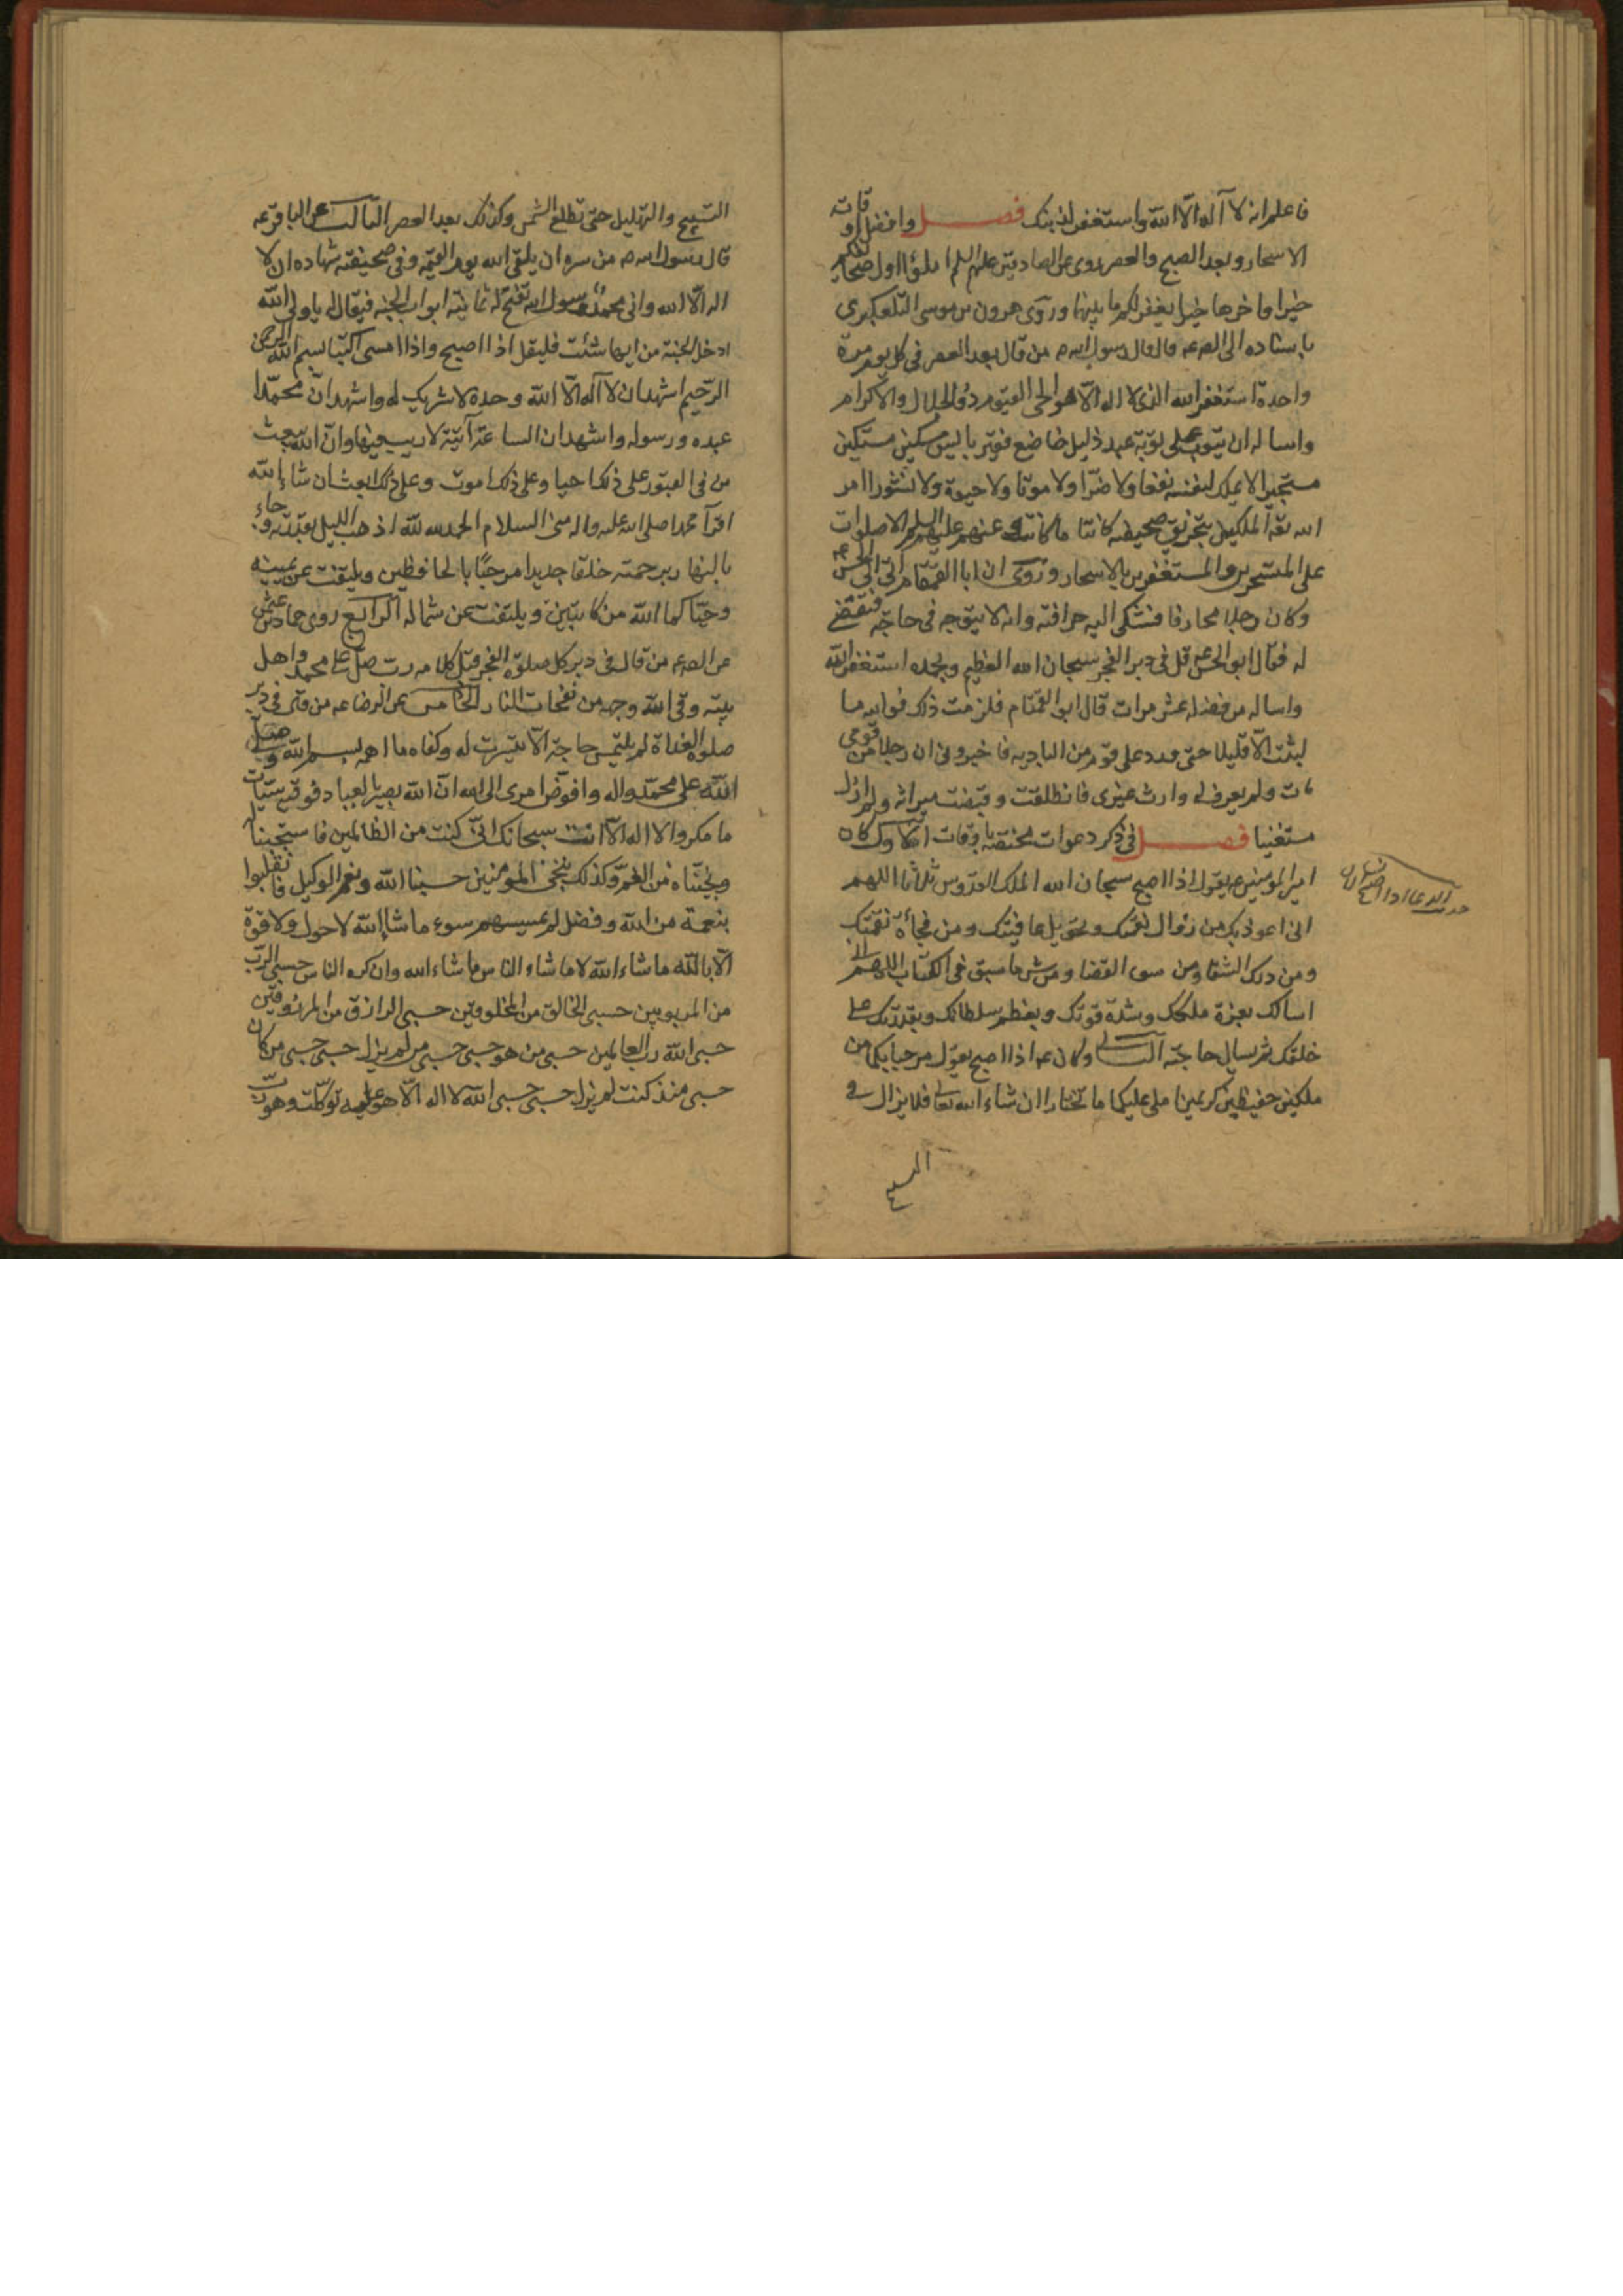 فاعلم انه لا آله الا الله واستغفر لذنبك فصل وافضل اوقاته
الاسحار وبعد الصبح والعصر روى عن الصادقين عليهم السلم املؤا اول صحايفكم
خيرا واخرها خيرا يغفر لكم ما بينها وروى هرون بن موسى التلعكبرى
باسناده الى الصه عه قال قال رسول الله ص من قال بعد العصر فى كل يوم مرة
واحدة استغفر الله الذى لا اله الا هو الحى القيوم ذو الجلال والاكرام
واساله ان يتوب على توبة عبد ذليل خاضع فقير بايس مسكين مستكين
مستجير لا يملك لنفسه نفعا ولا ضرا ولا موتا ولا حيوة ولا نشورا امر
الله تعه الملكين بتخريق صحيفته كائنا ما كانت وعنهم عليهم السلم الا صلوات
على المتسحرين والمستغفرين بالاسحار وروى ان ابا القمقام اتى ابى الحسن عه
وكان رجلا محارفا فشكى اليه حرافته وانه لا يتوجه فى حاجة فتقضى
له فقال ابو الحسن عه قل فى دبر الفجر سبحان الله العظيم وبحمده استغفر الله
واساله من فضله عشر مرات قال ابو القمقام فلزمت ذلك فوالله ما
لبثت الا قليلا حتى ورد على قوم من البادية فاخبرونى ان رجلا من قومى
مات ولم يعرف له وارث غيرى فانطلقت وقبضت ميراثه ولم ازل
مستغنيا فصل فى ذكر دعوات مختصة باوقات الاول كان
امير المومنين عه يقول اذا اصبح سبحان الله الملك القدوس ثلاثا اللهم
انى اعوذ بك من زوال نعمتك وتحويل عافيتك ومن فجأة نقمتك
ومن درك الشقا ومن سوء القضا ومن شر ما سبق فى الكتاب اللهم انى
اسالك بعزة ملكك وشدة قوتك وبعظم سلطانك وبقدرتك على
خلقك ثم يسال حاجته الثانى وكان عه اذا اصبح يقول مرحبا بكما من
ملكين حفيظين كريمين املى عليكما ما تحبان ان شاء الله تعا فلا يزال فى
التسبيح والتهليل حتى تطلع الشمس وكذلك بعد العصر الثالث عن الباقر عه
قال رسول الله ص من سره ان يلقى الله يوم القيمة وفى صحيفته شهاده ان لا
اله الا الله وانى محمد رسول الله تفتح له ثمانية ابواب الجنه فيقال له يا ولى الله
ادخل الجنة من ايها شئت فليقل اذا اصبح واذا امسى اكتبا بسم الله الرحمن
الرحيم اشهد ان لا آله الا الله وحده لا شريك له واشهد ان محمدا
عبده ورسوله واشهد ان الساعة آتية لا ريب فيها وان الله يبعث
من فى القبور على ذلك احيا وعلى ذلك اموت وعلى ذلك ابعث ان شاء الله
اقرآ محمدا صلى الله عليه واله منى السلام الحمد لله الذى اذهب الليل بقدرته وجاء
بالنهار برحمته خلقا جديدا مرحبًا بالحافظين ويلتفت عن يمينه
وحياكما الله من كاتبين ويلتفت عن شماله الرابع روى حماد بن عثمن
عن الصه عه من قال فى دبر كل صلوة الفجر قبل كلامه رب صل على محمد واهل
بيته وقى الله وجهه من نفحات النار الخامس عن الرضا عه من قال فى دبر
صلوة الغداة لم يلتمس حاجة الا تيسرت له وكفاه ما اهمه بسم الله وصلى
الله على محمد واله وافوض امرى الى الله ان الله بصير بالعباد فوقيه سيئات
ما مكروا لا اله الا انت سبحانك انى كنت من الظالمين فاستجبنا له
ونجيناه من الغم وكذلك ننجى المومنين حسبنا الله ونعم الوكيل فانقلبوا
بنعمة من الله وفضل لم يمسسهم سوء ما شاء الله لا حول ولا قوة
الا بالله ما شاء الله لا ما شاء الناس ما شاء الله وان كره الناس حسبى الرب
من المربوبين حسبى الخالق من المخلوقين حسبى الرازق من المرزوقين
حسبى الله رب العالمين حسبى من هو حسبى حسبى من لم يزل حسبى حسبى من كان
حسبى منذ كنت لم يزل حسبى حسبى الله لا اله الا هو عليه توكلت وهو رب